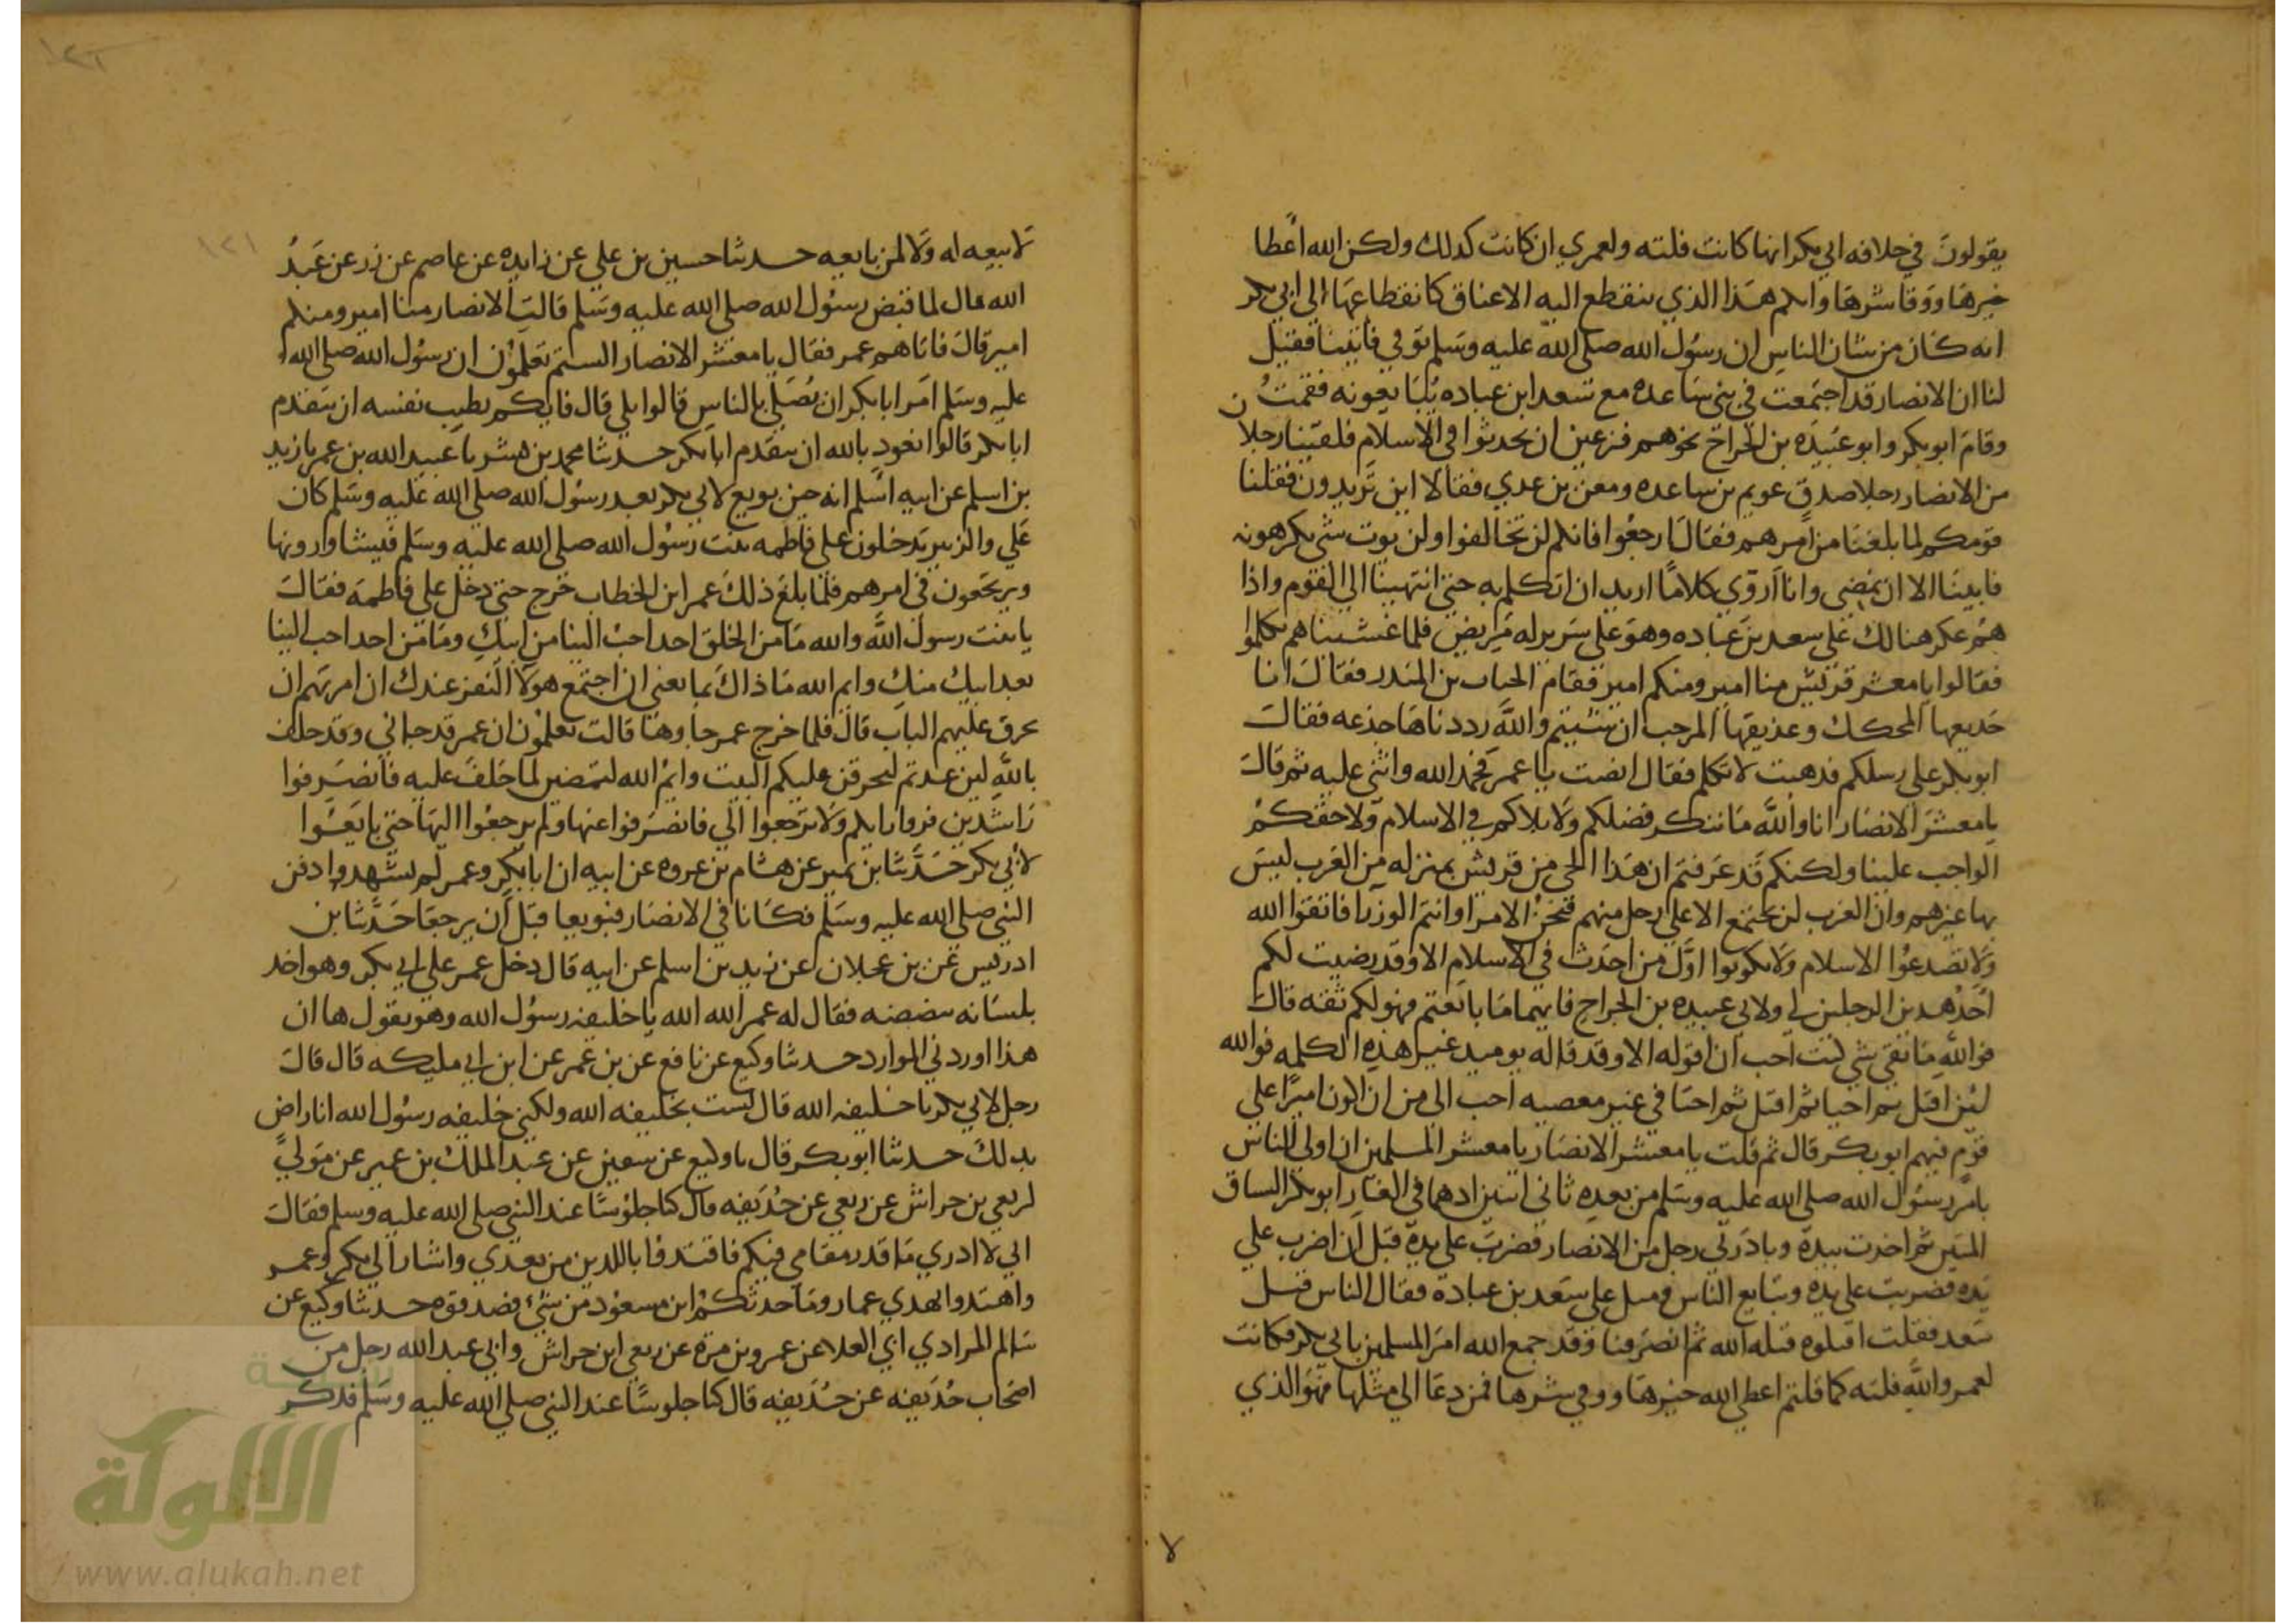 يقولون في خلافه ابي بكر انها كانت فلته ولعمري ان كانت كدلك ولكن الله اعطا
خيرها ووقا شرها واىكم هذا الذي ينقطع اليه الاعناق كانقطاعها الي ابي بكر
انه كان من شان الناس ان رسول الله صلى الله عليه وسلم توفي فاتينا فقيل
لنا ان الانصار قد اجتمعت في بني ساعده مع سعد ابن عباده يبايعونه فقمت
وقام ابو بكر وابو عبيده بن الجراح نحوهم فزعين ان يحدثوا في الاسلام فلقينا رجلا
من الانصار رجلا صدق عويم بن ساعده ومعن بن عدي فقالا اين تريدون فقلنا
قومكم لما بلغنا من امرهم فقالا ارجعوا فانكم لن تخالفوا ولن يوت شي يكرهونه
فابينا الا ان نمضي وانا ازوي كلاما اريد ان اتكلم به حتي انتهينا الي القوم واذا
هم عكر هنالك علي سعد بن عباده وهو علي سرير له مريض فلما غشيناهم تكلموا
فقالوا يا معشر قريش منا امير ومنكم امير فقام الحباب بن المنذر فقال انا
جديعها المحكك وعذيقها المرجب ان شيتم والله رددناها جذعه فقال
ابو بكر علي رسلكم فدهبت لاتكلم فقال انصت يا عمر فحمد الله واثني عليه ثم قال
يا معشر الانصار انا والله ما ننكر فضلكم ولا بلاكم في الاسلام ولا حقكم
الواجب علينا ولكنكم قد عرفتم ان هذا الحي من قريش بمنزله من العرب ليس
بها غيرهم وان العرب لن تجتمع الا علي رجل منهم فنحن الامرا وانتم الوزرا فاتقوا الله
ولا تصدعوا الاسلام ولا تكونوا اول من احدث في الاسلام الا وقد رضيت لكم
احد هدين الرجلين لي ولابي عبيده بن الجراح فايهما ما بايعتم فهو لكم ثقه قال
فوالله ما بقي شي كنت احب ان اقوله الا وقد قاله يوميد غير هذه الكلمه فوالله
لئن اقتل ثم احيا ثم اقتل ثم احيا في غير معصيه احب الي من ان اكون اميرا علي
قوم فيهم ابو بكر قال ثم قلت يا معشر الانصار يا معشر المسلمين ان اولي الناس
بامر رسول الله صلي الله عليه وسلم من بعده ثاني اثنين اذ هما في الغار ابو بكر السباق
المبين ثم اخذت بيده وبادرني رجل من الانصار فضرب علي يده قبل ان اضرب علي
يده فضربت علي يده وتبايع الناس وميل علي سعد بن عبادة فقال الناس قتل
سعد فقلت اقتلوه قتله الله ثم انصرفنا وقد جمع الله امر المسلمين بابي بكر فكانت
لعمر والله فلته كما قلتم اعطي الله خيرها ووقي شرها فمن دعا الي مثلها فهو الذي
لا بيعه له ولا لمن بايعه حدثنا حسين بن علي عن زايده عن عاصم عن زر عن عبد
الله قال لما قبض رسول الله صلي الله عليه وسلم قالت الانصار منا امير ومنكم
امير قال فاتاهم عمر فقال يا معشر الانصار الستم تعلمون ان رسول الله صلي الله
عليه وسلم امر ابا بكر ان يصلي بالناس قالوا بلي قال فايكم يطيب نفسه ان يتقدم
ابا بكر قالوا نعوذ بالله ان نتقدم ابا بكر حدثنا محمد بن بشر نا عبيد الله بن عمر نا زيد
بن اسلم عن ابيه اسلم انه حين بويع لابي بكر بعد رسول الله صلي الله عليه وسلم كان
علي والزبير يدخلون علي فاطمه بنت رسول الله صلي الله عليه وسلم فيشاورونها
ويرتجعون في امرهم فلما بلغ ذلك عمر ابن الخطاب خرج حتي دخل علي فاطمة فقال
يا بنت رسول الله والله ما من الخلق احد احب الينا من ابيك وما من احد احب الينا
بعد ابيك منك وايم الله ما ذاك بما نعي ان اجتمع هولا النفر عندك ان امرتهم ان
يحرق عليهم الباب قال فلما خرج عمر جاوها قالت تعلمون ان عمر قد جاني وقد حلف
بالله لين عدتم ليحرقن عليكم البيت وايم الله ليمضين لما حلف عليه فانصرفوا
راشدين فروا رايكم ولا ترجعوا الي فانصرفوا عنها ولم يرجعوا اليها حتي بايعوا
لابي بكر حدثنا بن نمير عن هشام بن عروه عن ابيه ان ابا بكر وعمر لم يشهدوا دفن
النبي صلي الله عليه وسلم فكانا في الانصار فبويعا قبل ان يرجعا حدثنا بن
ادريس عن بن عجلان عن زيد بن اسلم عن ابيه قال دخل عمر علي ابي بكر وهو اخد
بلسانه ينضنضه فقال له عمر الله الله يا خليفه رسول الله وهو يقول ها ان
هذا اوردني الموارد حدثنا وكيع عن نافع عن بن عمر عن ابن ابي مليكه قال قال
رجل لابي بكر يا خليفه الله قال لست بخليفه الله ولكني خليفه رسول الله انا راض
بدلك حدثنا ابو بكر قال نا وكيع عن سفين عن عبد الملك بن عمير عن مولي
لربعي بن حراش عن ربعي عن حذيفه قال كنا جلوسا عند النبي صلي الله عليه وسلم فقال
اني لا ادري ما قدر مقامي فيكم فاقتدوا باللذين من بعدي واشار الي ابي بكر وعمر
واهتدوا بهدي عمار وما حدثكم ابن مسعود من شيء فصدقوه حدثنا وكيع عن
سالم المرادي ابي العلا عن عمرو بن مرة عن ربعي ابن حراش وابي عبد الله رجل من
اصحاب حذيفه عن حذيفه قال كنا جلوسا عند النبي صلي الله عليه وسلم فدكر
١٢١
١٢٢
الألوكة
www.alukah.net